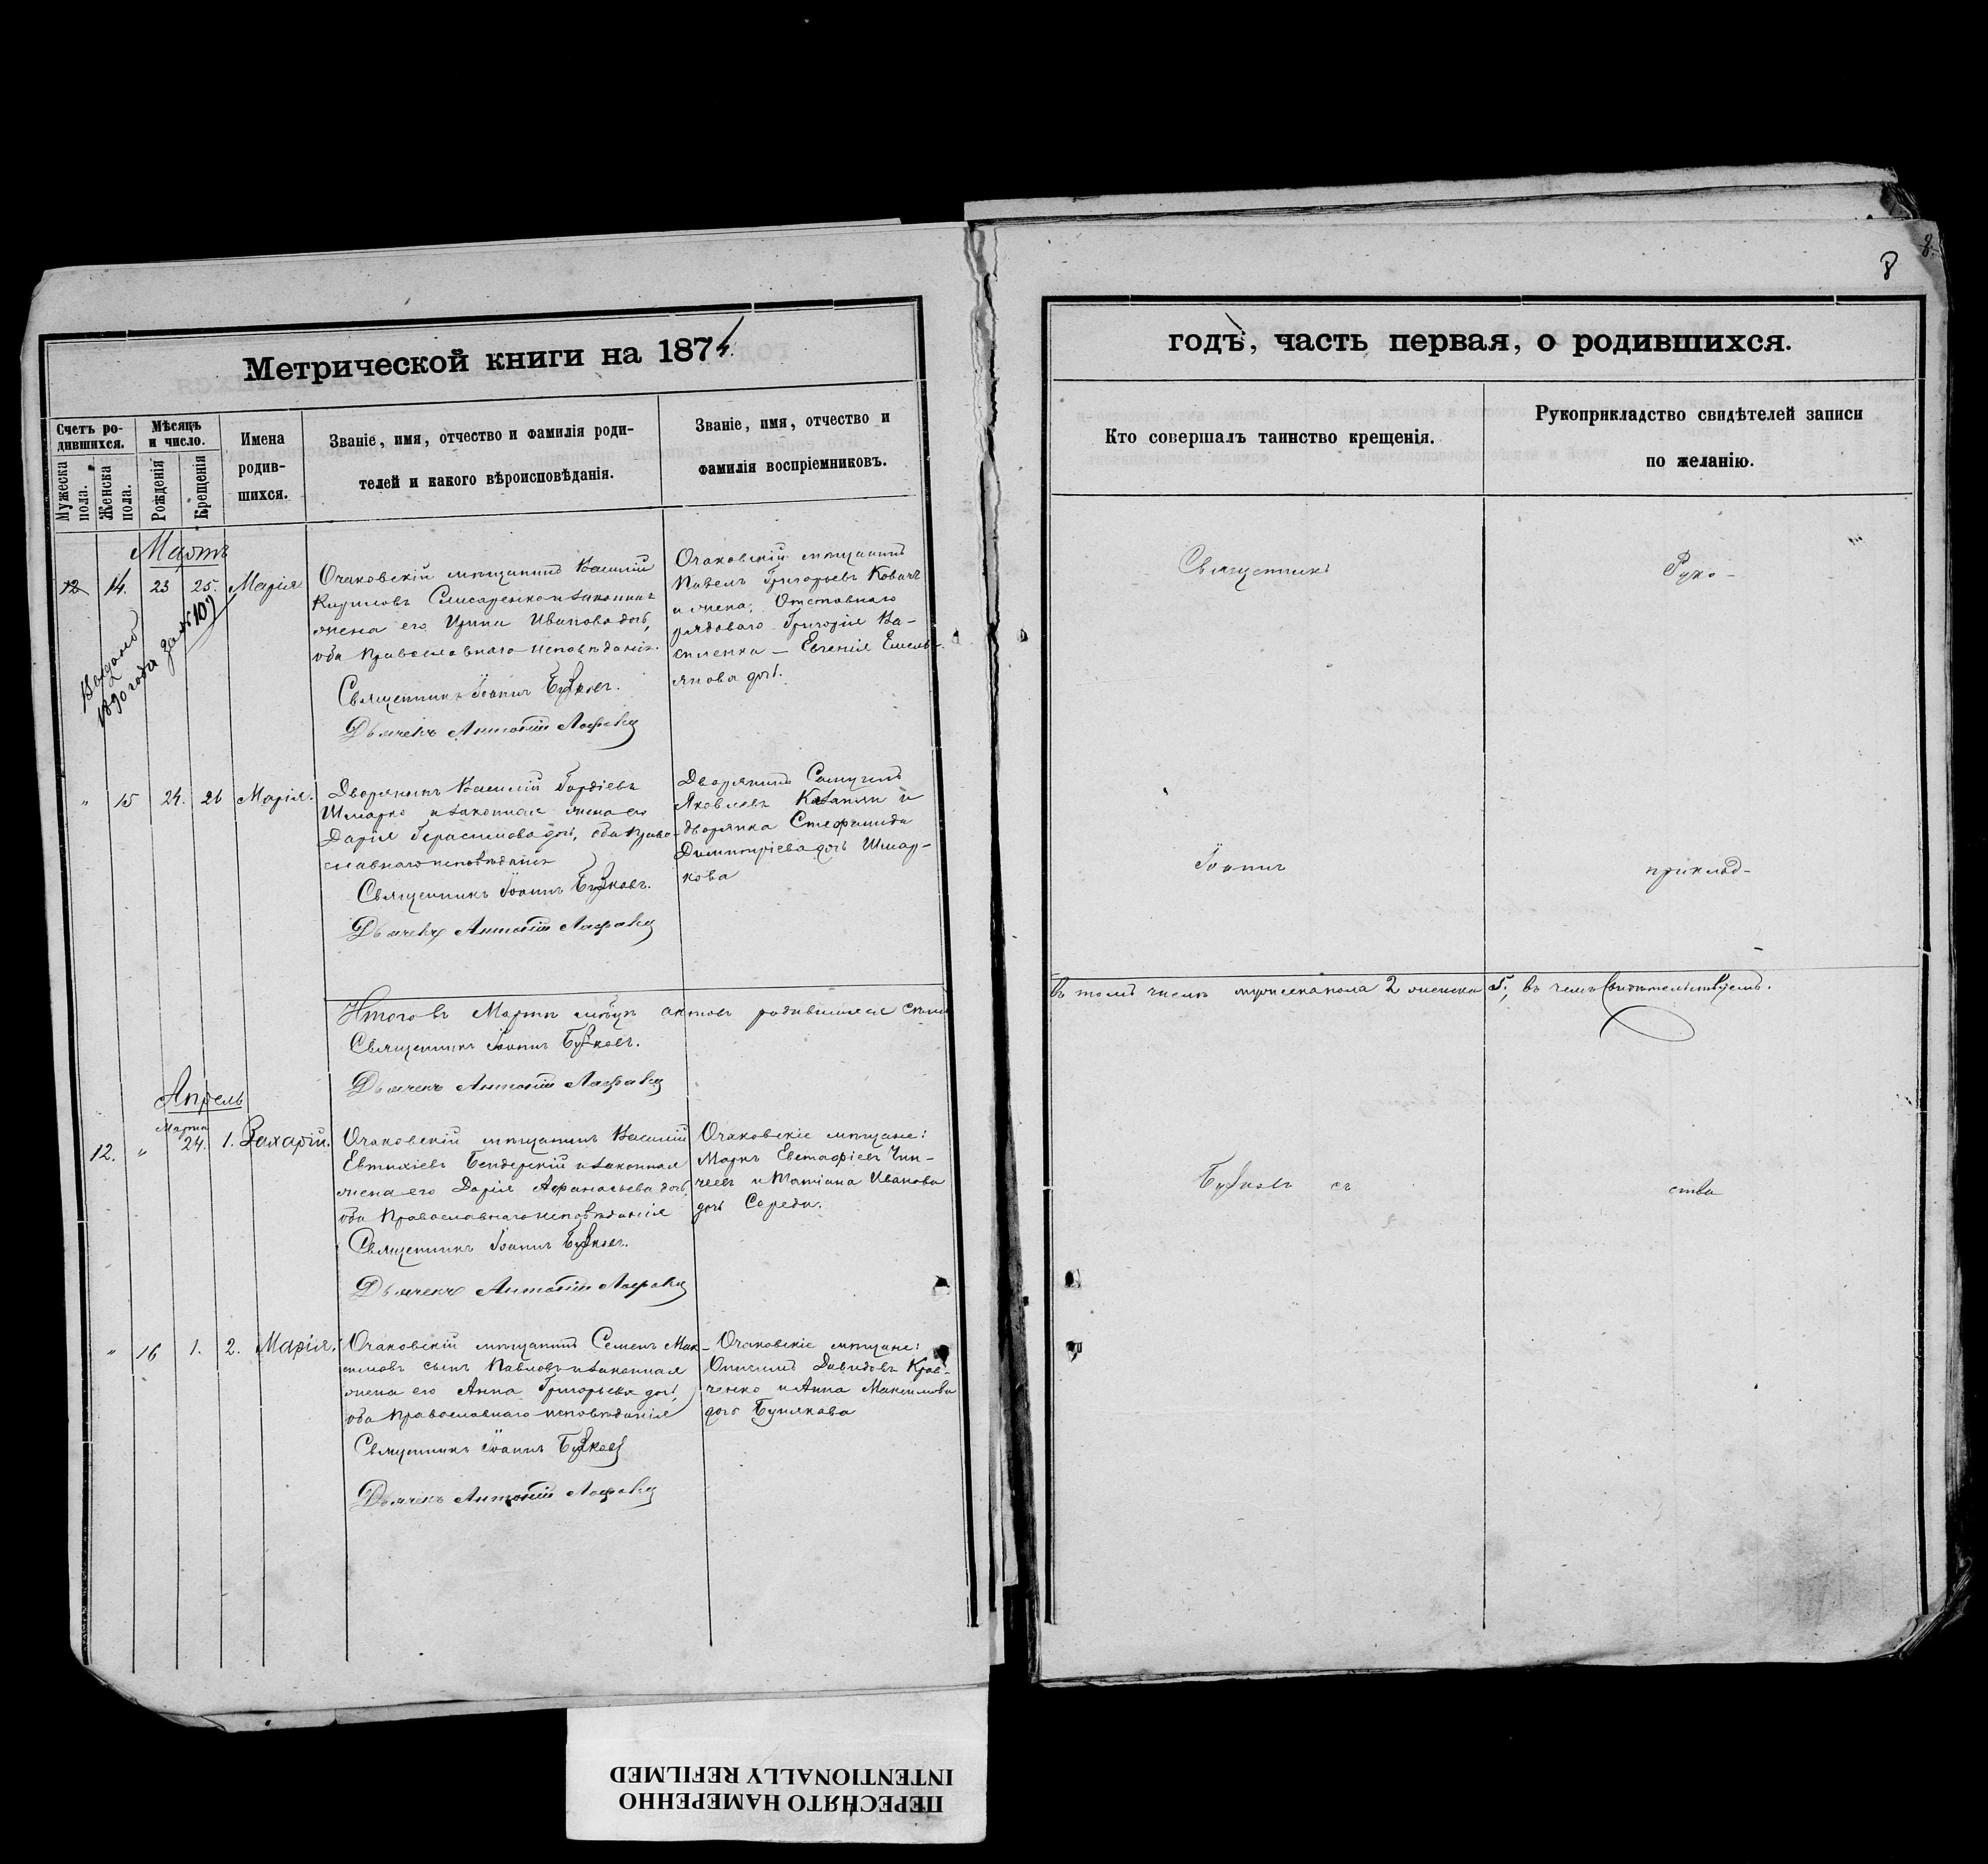 8
8.
Метрической книги на 1874.
годъ, часть первая, о родившихся.
Счетъ ро-
дившихся.
Мужеска
пола.
Женска
пола.
Мѣсяцъ
и число.
Рожденія
Крещенія
Имена
родив-
шихся.
Званіе, имя, отчество и фамилія роди-
телей и какого вѣроисповѣданія.
Званіе, имя, отчество и
фамилія воспріемниковъ.
Кто совершалъ таинство крещенія.
Рукоприкладство свидѣтелей записи
по желанію.
Мартъ
12 14. 23 25. Марія
Выдано
1890 года за № 109
Очаковскій мѣщанинъ Василій
Кириловъ Слисаренко и законная
жена его Ирина Иванова дочь,
оба православнаго исповѣданія.
Священникъ Іоаннъ Бузковъ.
Дьячекъ Антоній
Очаковскій мѣщанинъ
Павелъ Григорьевъ Ковачъ
и жена: Отставнаго
рядоваго Григорія Ва-
силенка — Евгенія Емель-
янова дочь.
" 15 24. 26 Марія.
Дворянинъ Василій Гордіевъ
Шмарко и законная жена его
Дарія Герасимова дочь, оба право-
славнаго исповѣданія
Священникъ Іоаннъ Бузковъ.
Дьячекъ Антоній
Дворянинъ
Яковлевъ и
дворянка Стефанида
Димитріева дочь Шмар-
кова
Итого въ Мартѣ мѣсяцѣ актовъ родившихся семь
Священникъ Іоаннъ Бузковъ.
Дьячекъ Антоній
Апрель
12. " Марта 24. 1. Захарій.
Очаковскій мѣщанинъ Василій
Евтихіевъ Бендерскій и законная
жена его Дарія Афанасьева дочь,
оба православнаго исповѣданія
Священникъ Іоаннъ Бузковъ.
Дьячекъ Антоній
Очаковскіе мѣщане:
Маркъ Евстафіевъ Чин-
чеевъ и Татіана Иванова
дочь Середа.
" 16 1. 2. Марія.
Очаковскій мѣщанинъ Семенъ Мак-
симовъ сынъ Павловъ и законная
жена его Анна Григорьева дочь,
оба православнаго исповѣданія
Священникъ Іоаннъ Бузковъ
Дьячекъ Антоній
Очаковскіе мѣщане:
Онисимъ Давидовъ Крав-
ченко и Анна Максимова
дочь Бунякова
Священникъ
Руко-
Іоаннъ
приклад-
въ томъ числѣ мужеска пола 2 женска 5, въ чемъ свидѣтельствуемъ.
Бузковъ съ
ства
ПЕРЕСНЯТО НАМЕРЕННО
INTENTIONALLY REFILMED